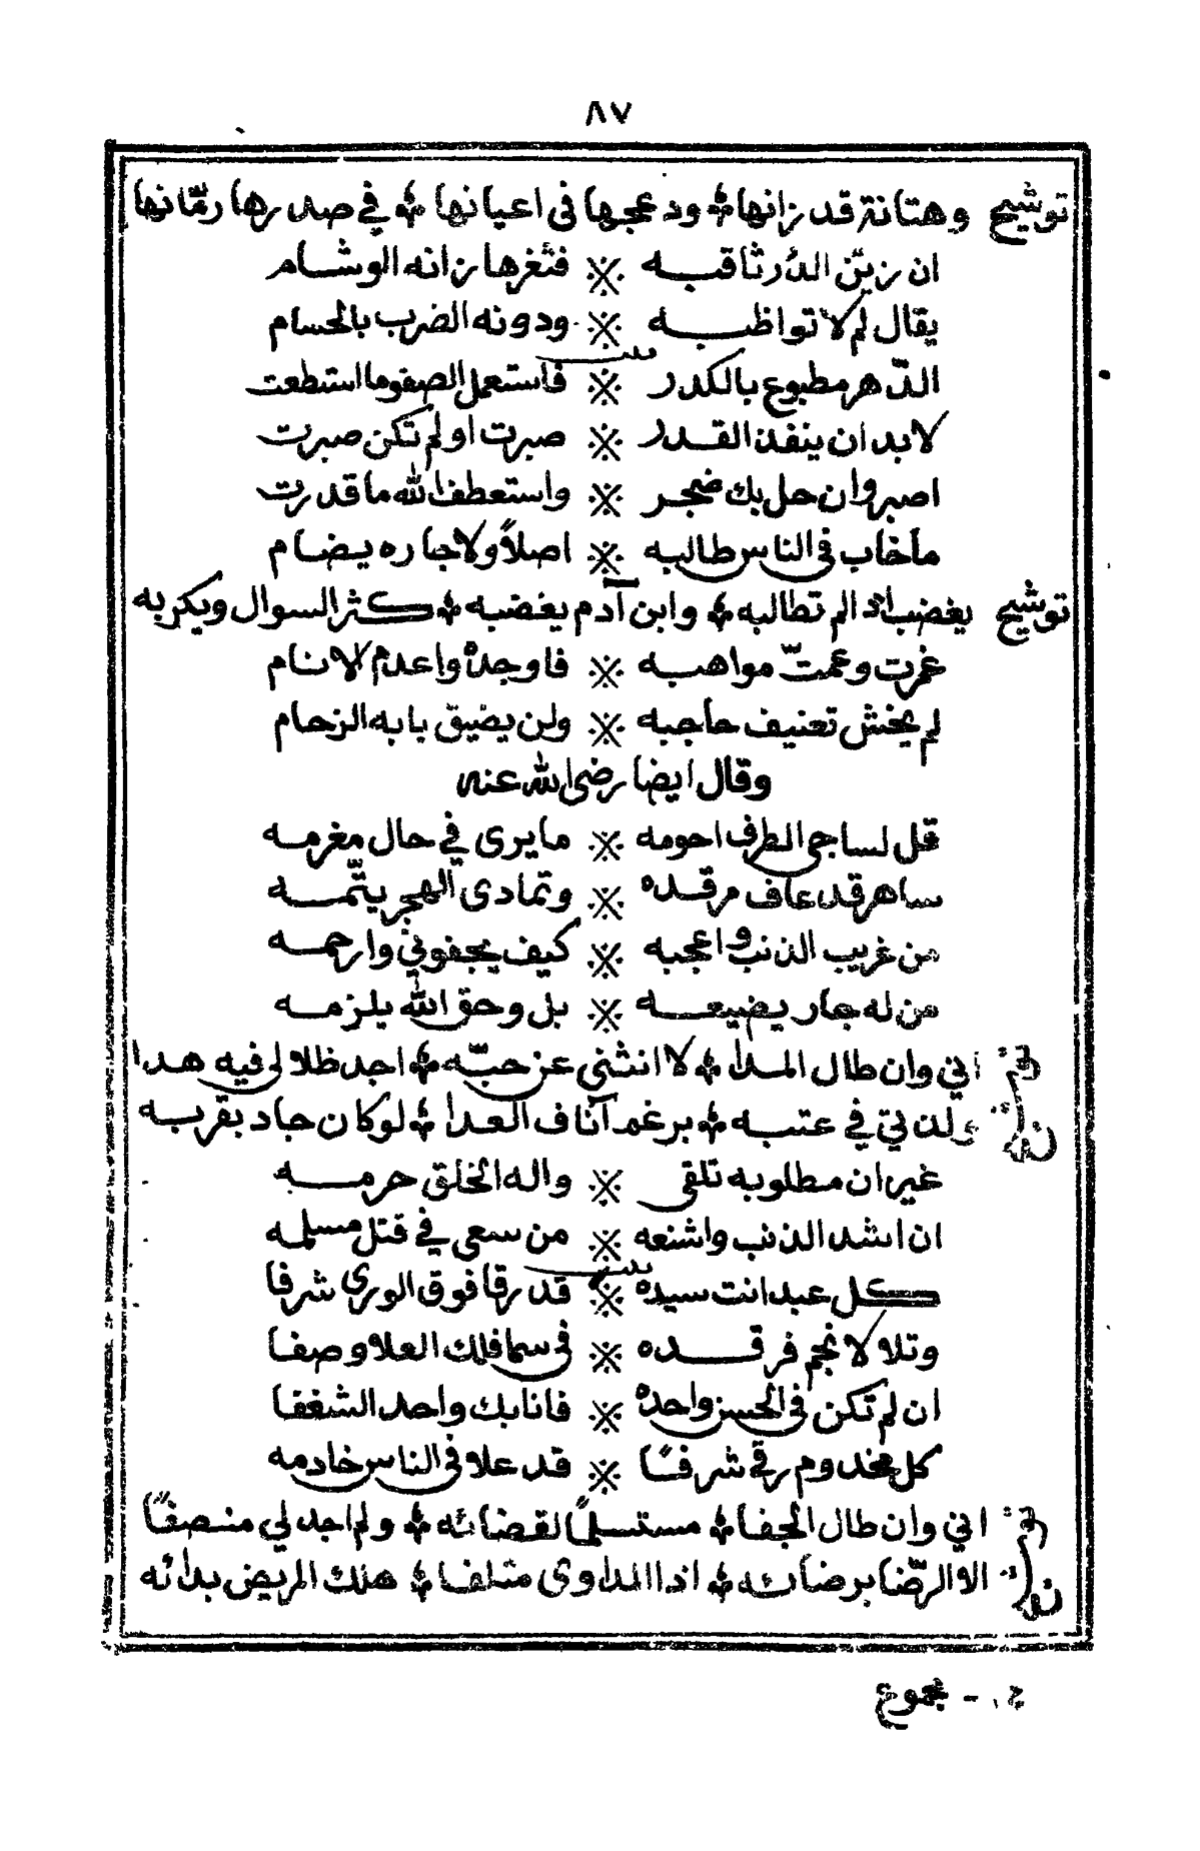 ٨٧
توشيح وهتانة قد زانها ودعجها فى اعيانها في صدرها رمّانها
ان زيّن الدُر ثاقبه فثغرها زانه الوشام
يقال لم لا تواظبه ودونه الضرب بالحسام
بيت
الدّهر مطبوع بالكدر فاستعمل الصفو ما استطعت
لابد ان ينفذ القدر صبرت او لم تكن صبرت
اصبر وان حل بك ضجر واستعطف الله ما قدرت
ماخاب فى الناس طالبه اصلاً ولا جاره يضام
توشيح يغضب اذا لم تطالبه وابن آدم يغضبه كثر السوال ويكربه
غمرت وعمتّ مواهبه فاوجده واعدم الانام
لم يخش تعنيف حاجبه ولن يضيق بابه الزحام
وقال ايضا رضى الله عنه
قل لساجى الطرف احومه ما يرى في حال مغرمه
ساهر قد عاف مرقده وتمادى الهجر يتّمه
من غريب الذنب واعجبه كيف يجفوني وارحمه
من له جار يضيعه بل وحق الله يلزمه
اني وان طال المدا لا انثني عن حبّه اجد ظلالى فيه هدا
ولذ لي في عتبه برغم آناف العدا لو كان جاد بقربه
غير ان مطلوبه تلقى واله الخلق حرمه
ان اشد الذنب واشنعه من سعى في قتل مسلمه
بيت
كل عبد انت سيده قد رقا فوق الورى شرفا
وتلا لا نجم فرقده فى سما فلك العلا وصفا
ان لم تكن فى الحسن واحده فانا بك واحد الشغفا
كل مخدوم رقي شرفًا قد علا فى الناس خادمه
اني وان طال الجفا مستسلمًا لقضائه ولم اجد لي منصفًا
الا الرّضا برضائه اذا المداوى متلفا هلك المريض بدائه
مجموع